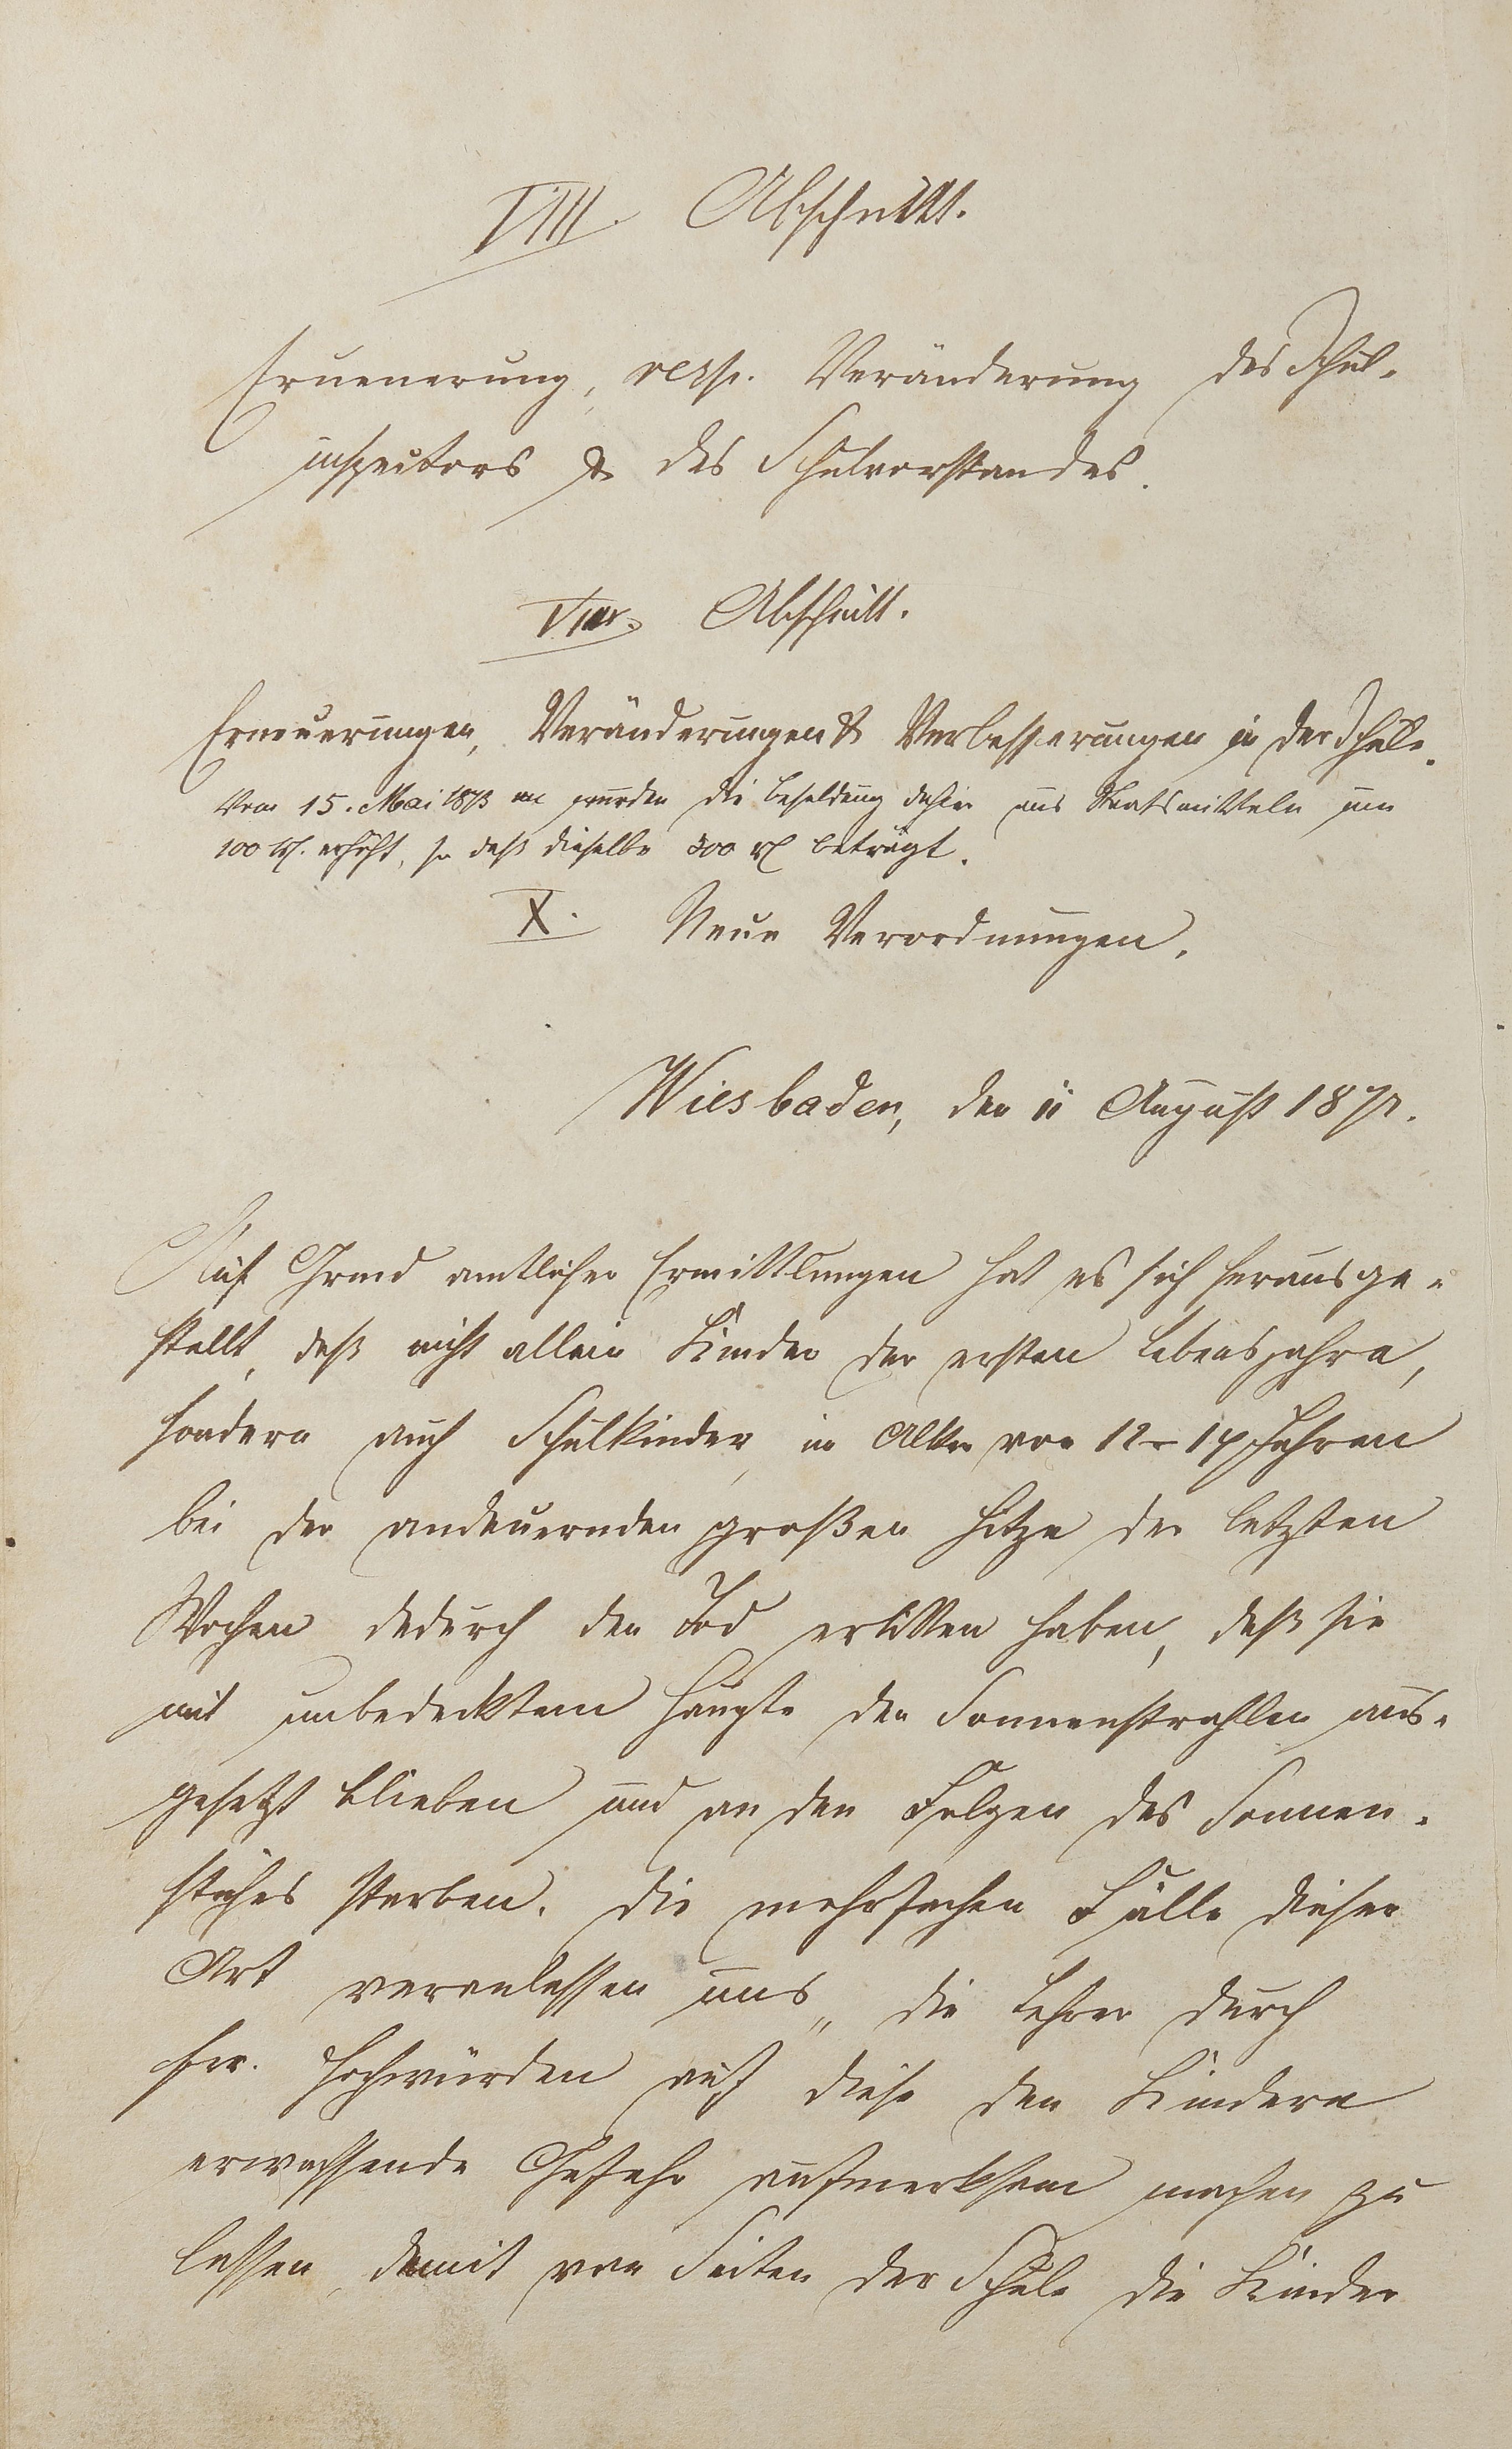 VIII. Abschnitt.
Erneuerung, resp. Veränderung des Schul-
inspectors & des Schulvorstandes.
Abschnitt.
Erneuerungen, Veränderungen & Verbesserungen in der Schule.
Vom 15. Mai 1873 an wurden die Besoldung dahier aus Staatsmitteln um
100 erhöht, so daß dieselbe 300 beträgt.
X. Neue Verordnungen.
Wiesbaden, den 11 August
Auf Grund amtlicher Ermittlungen hat es sich herausge-
stellt, daß nicht allein Kinder der ersten Lebensjahre,
sondern auch Schulkinder, im Alter von 12-14 Jahren
bei der andauernden großen Hitze der letzten
Wochen dadurch den Tod erlitten haben, daß sie
mit unbedecktem Haupte den Sonnenstrahlen aus-
gesetzt blieben und an den Folgen des Sonnen-
stiches starben. Die mehrfachen Fälle dieser
Art veranlassen uns, die Lehrer durch
Ew. Hochwürden auf diese den Kindern
erwachsende Gefahr aufmerksam machen zu
lassen, damit von Seiten der Schule die Kinder